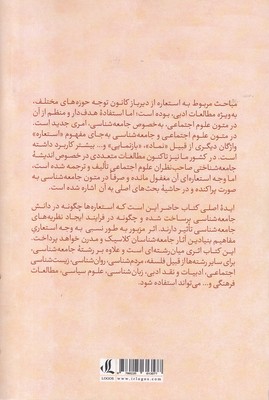 مباحث مربوط به استعاره از دیرباز کانون توجه حوزه‌های مختلف،
به‌ویژه مطالعات ادبی، بوده است؛ اما استفادهٔ هدف‌دار و منظم از آن
در متون علوم اجتماعی، به‌خصوص جامعه‌شناسی، امری جدید است.
در متون علوم اجتماعی و جامعه‌شناسی به‌جای مفهوم «استعاره»
واژگان دیگری از قبیل «نماد»، «بازنمایی» و... بیشتر کاربرد داشته
است. در کشور ما نیز تاکنون مطالعات متعددی در خصوص اندیشهٔ
جامعه‌شناختی صاحب‌نظران علوم اجتماعی تألیف و ترجمه شده است.
اما وجه استعاره‌ای آن مغفول مانده و صرفاً در متون جامعه‌شناسی به
صورت پراکنده و در حاشیهٔ بحث‌های اصلی به آن اشاره شده است.
ایدهٔ اصلی کتاب حاضر این است که استعاره‌ها چگونه در دانش
جامعه‌شناسی برساخت شده و چگونه در فرایند ایجاد نظریه‌های
جامعه‌شناسی تأثیر دارند. اثر مزبور به طور نسبی به وجه استعاری
مفاهیم بنیادین آثار جامعه‌شناسان کلاسیک و مدرن خواهد پرداخت.
این کتاب اثری میان‌رشته‌ای است و علاوه بر رشتهٔ جامعه‌شناسی،
برای سایر رشته‌ها از قبیل فلسفه، مردم‌شناسی، روان‌شناسی، زیست‌شناسی
اجتماعی، ادبیات و نقد ادبی، زبان‌شناسی، علوم سیاسی، مطالعات
فرهنگی و... می‌تواند استفاده شود.
LOGOS
www.irlogos.com